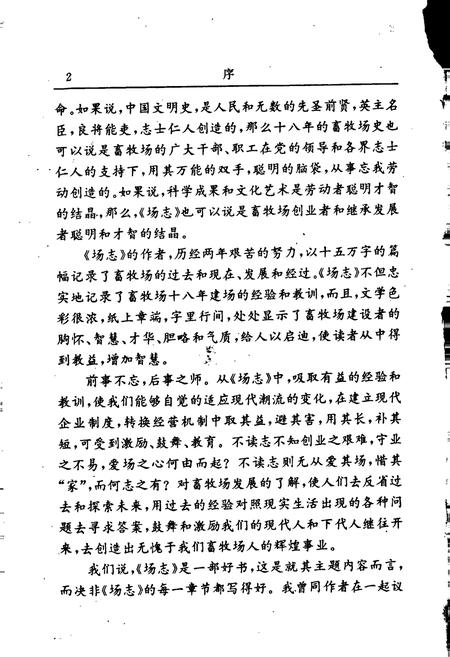 2 序
命。如果说,中国文明史,是人民和无数的先圣前贤,英主名
臣,良将能吏,志士仁人创造的,那么十八年的畜牧场史也
可以说是畜牧场的广大干部、职工在党的领导和各界志士
仁人的支持下,用其万能的双手,聪明的脑袋,从事忘我劳
动创造的。如果说,科学成果和文化艺术是劳动者聪明才智
的结晶,那么,《场志》也可以说是畜牧场创业者和继承发展
者聪明和才智的结晶。
《场志》的作者,历经两年艰苦的努力,以十五万字的篇
幅记录了畜牧场的过去和现在、发展和经过。《场志》不但忠
实地记录了畜牧场十八年建场的经验和教训,而且,文学色
彩很浓,纸上章端,字里行间,处处显示了畜牧场建设者的
胸怀、智慧、才华、胆略和气质,给人以启迪,使读者从中得
到教益,增加智慧。
前事不忘,后事之师。从《场志》中,吸取有益的经验和
教训,使我们能够自觉的适应现代潮流的变化,在建立现代
企业制度,转换经营机制中取其益,避其害,用其长,补其
短,可受到激励、鼓舞、教育。不读志不知创业之艰难,守业
之不易,爱场之心何由而起?不读志则无从爱其场,惜其
“家”,而何志之有?对畜牧场发展的了解,使人们去反省过
去和探索未来,用过去的经验对照现实生活出现的各种问
题去寻求答案,鼓舞和激励我们的现代人和下代人继往开
来,去创造出无愧于我们畜牧场人的辉煌事业。
我们说,《场志》是一部好书,这是就其主题内容而言,
而决非《场志》的每一章节都写得好。我曾同作者在一起议